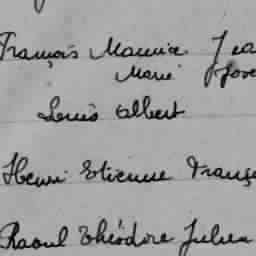 François Maurice Jea
Marie Jose
Louis Albert
Henri Etienne França
Raoul Théodore Julien